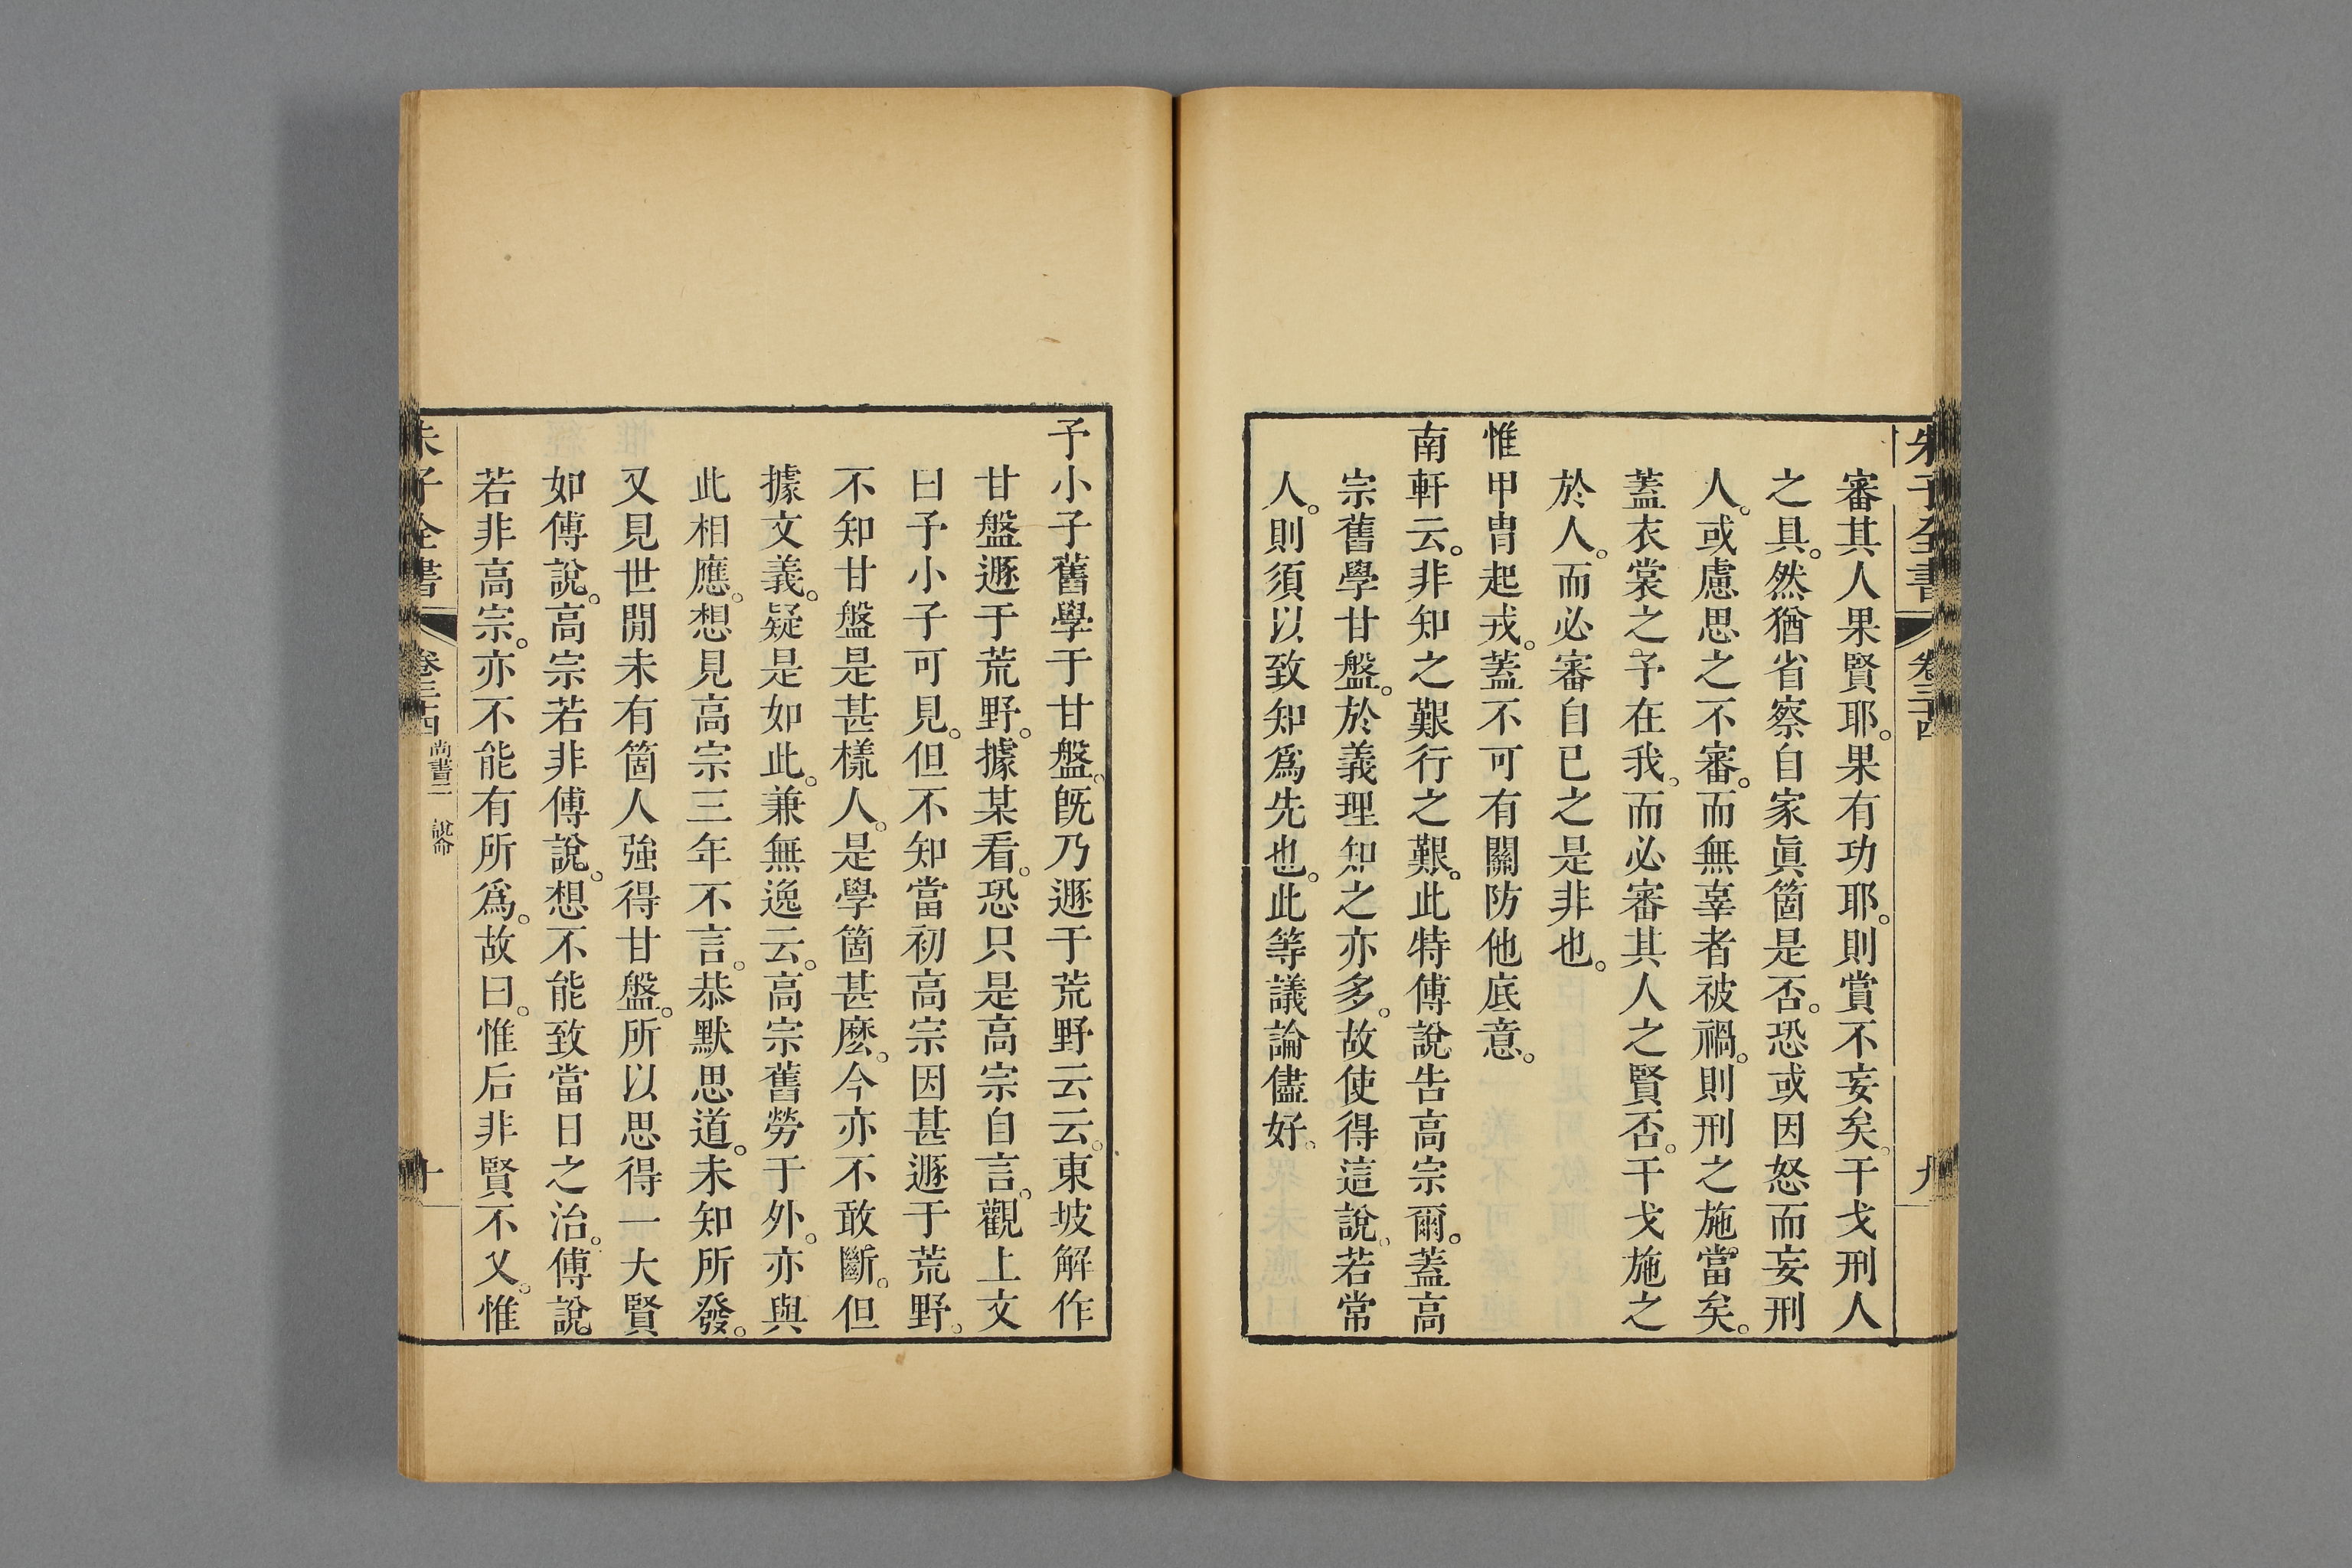 朱子全書 卷三十四 九
審其人果賢耶。果有功耶。則賞不妄矣。干戈刑人
之具。然猶省察自家眞箇是否。恐或因怒而妄刑
人。或慮思之不審。而無辜者被禍。則刑之施當矣。
蓋衣裳之予在我。而必審其人之賢否。干戈施之
於人。而必審自已之是非也。
惟甲冑起戎。蓋不可有關防他底意。
南軒云。非知之艱行之艱。此特傅說告高宗爾。蓋高
宗舊學甘盤。於義理知之亦多。故使得這說。若常
人。則須以致知爲先也。此等議論儘好。
予小子舊學于甘盤。旣乃遯于荒野云云。東坡解作
甘盤遯于荒野。據某看。恐只是高宗自言。觀上文
曰予小子可見。但不知當初高宗因甚遯于荒野。
不知甘盤是甚樣人。是學箇甚麽。今亦不敢斷。但
據文義。疑是如此。兼無逸云。高宗舊勞于外。亦與
此相應。想見高宗三年不言。恭默思道。未知所發。
又見世閒未有箇人強得甘盤。所以思得一大賢
如傅說。高宗若非傅說。想不能致當日之治。傅說
若非高宗。亦不能有所爲。故曰。惟后非賢不乂。惟
朱子全書 卷三十四 尚書二 說命 十